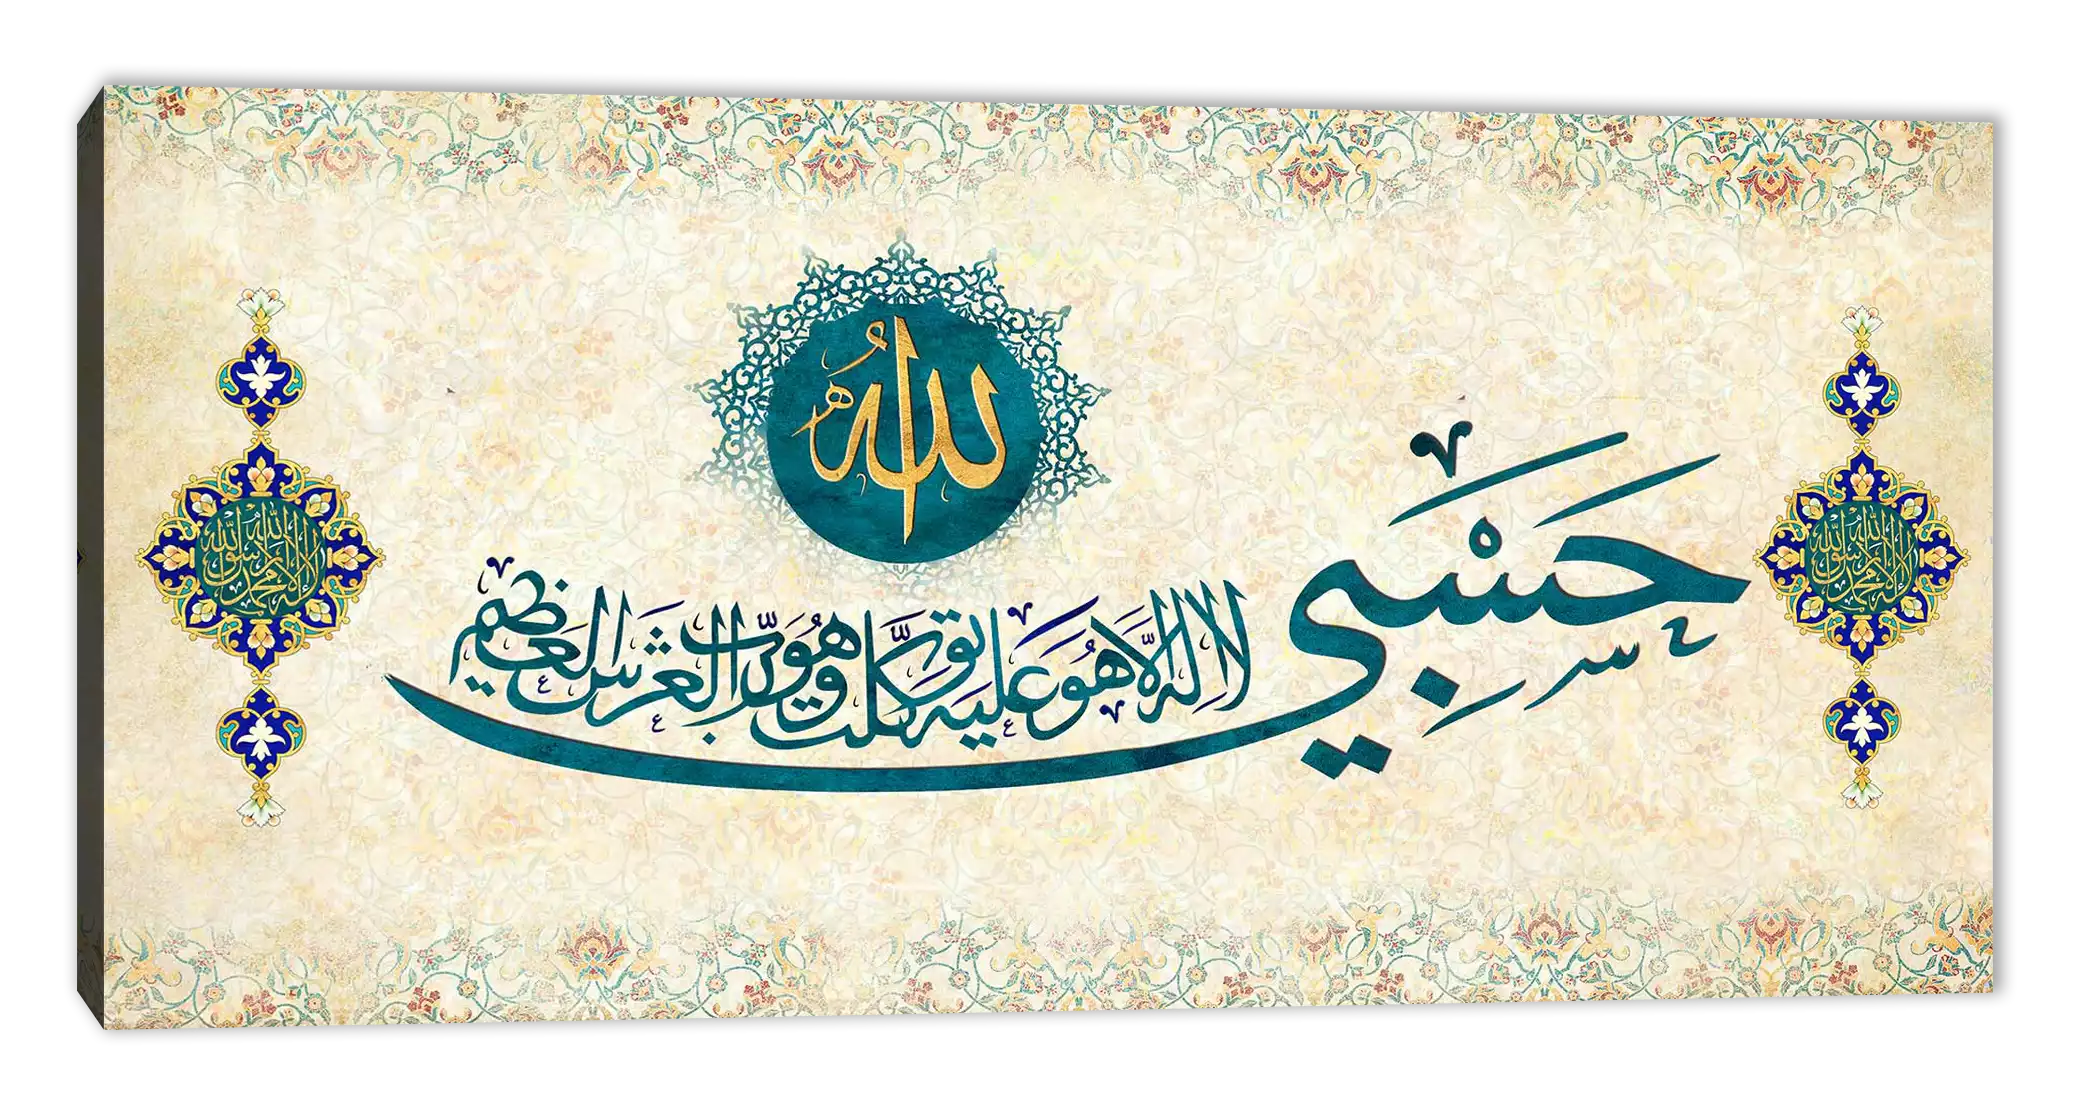 حَسْبِيَ
اللهُ
لا إله إلَّا هُوَ عَلَيهِ تَوَكَّلتُ وَهُوَ رَبُّ العَرْشِ العَظِيمِ
لا إله إلا الله محمد رسول الله
لا إله إلا الله محمد رسول الله